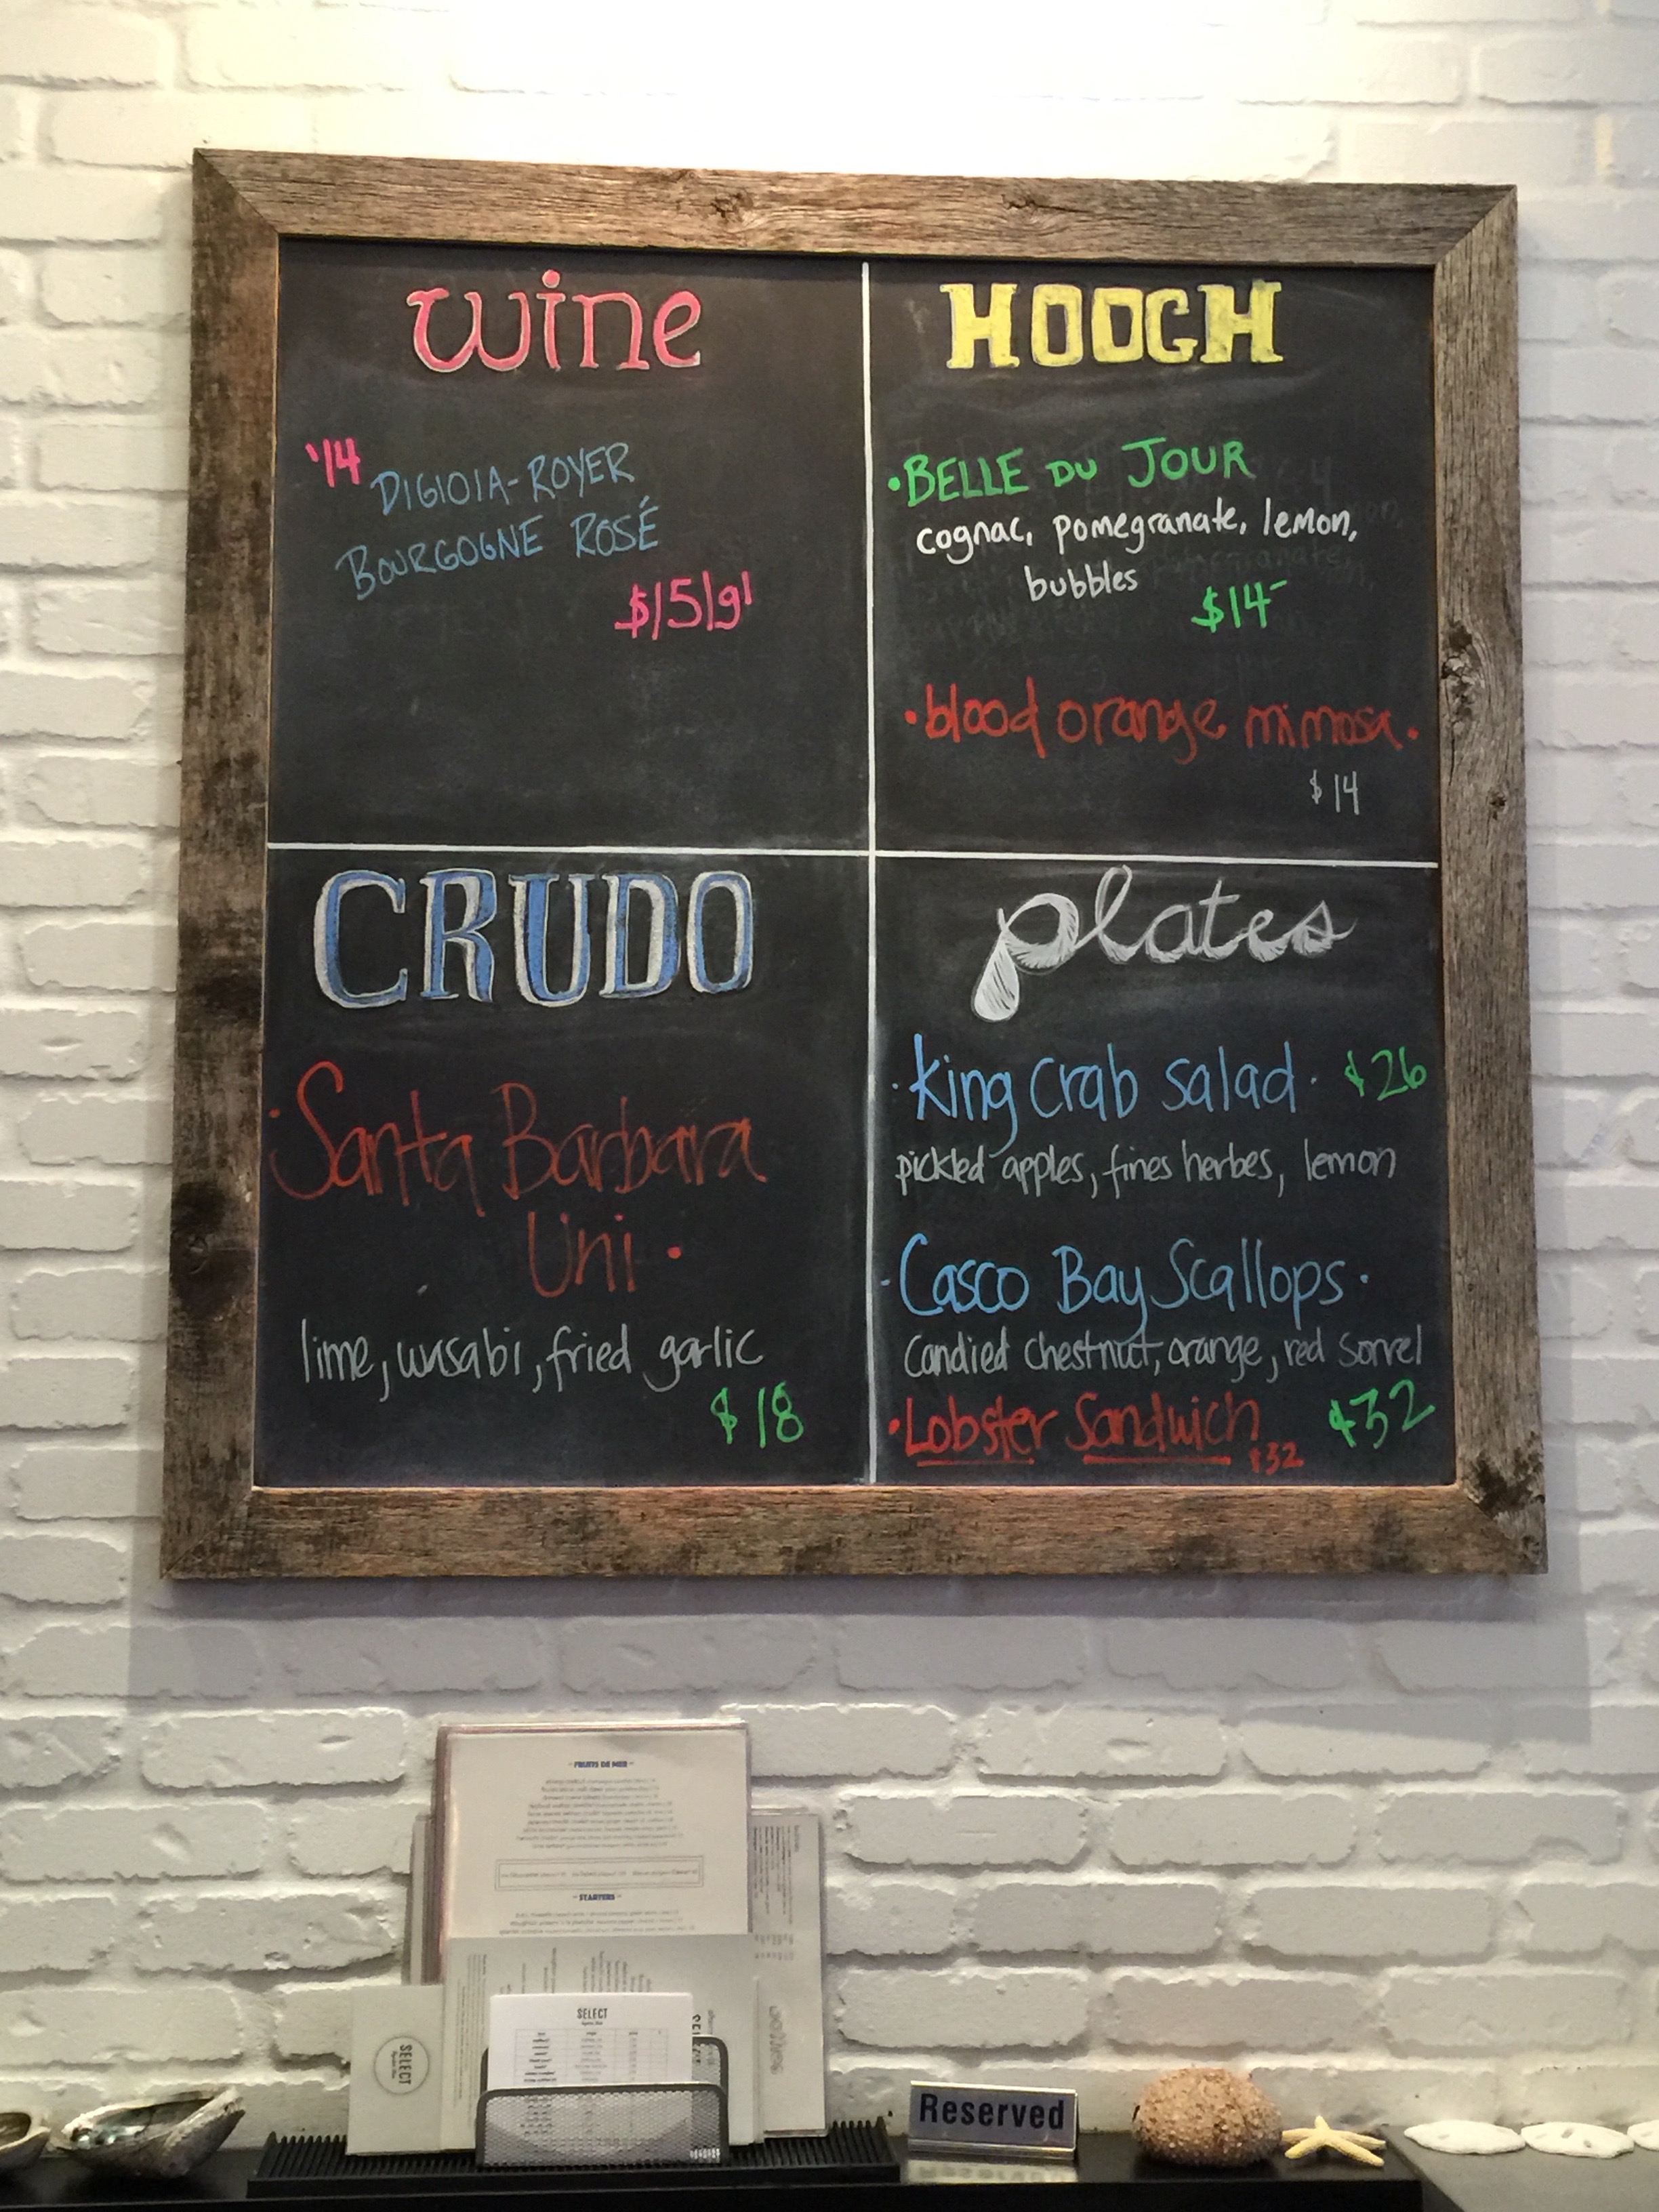 wine
'14
DIGIOIA-ROYER
BOURGOGNE ROSÉ
$15/gl
HOOCH
·BELLE DU JOUR
cognac, pomegranate, lemon,
bubbles
$14-
·blood orange mimosa·
$14
CRUDO
·Santa Barbara
Uni·
lime, wasabi, fried garlic
$18
plates
·king crab salad· $26
pickled apples, fines herbes, lemon
·Casco Bay Scallops·
Candied chestnut, orange, red sorrel
$32
·Lobster Sandwich $32
- FRUITS DE MER -
- STARTERS -
SELECT
SELECT
Reserved